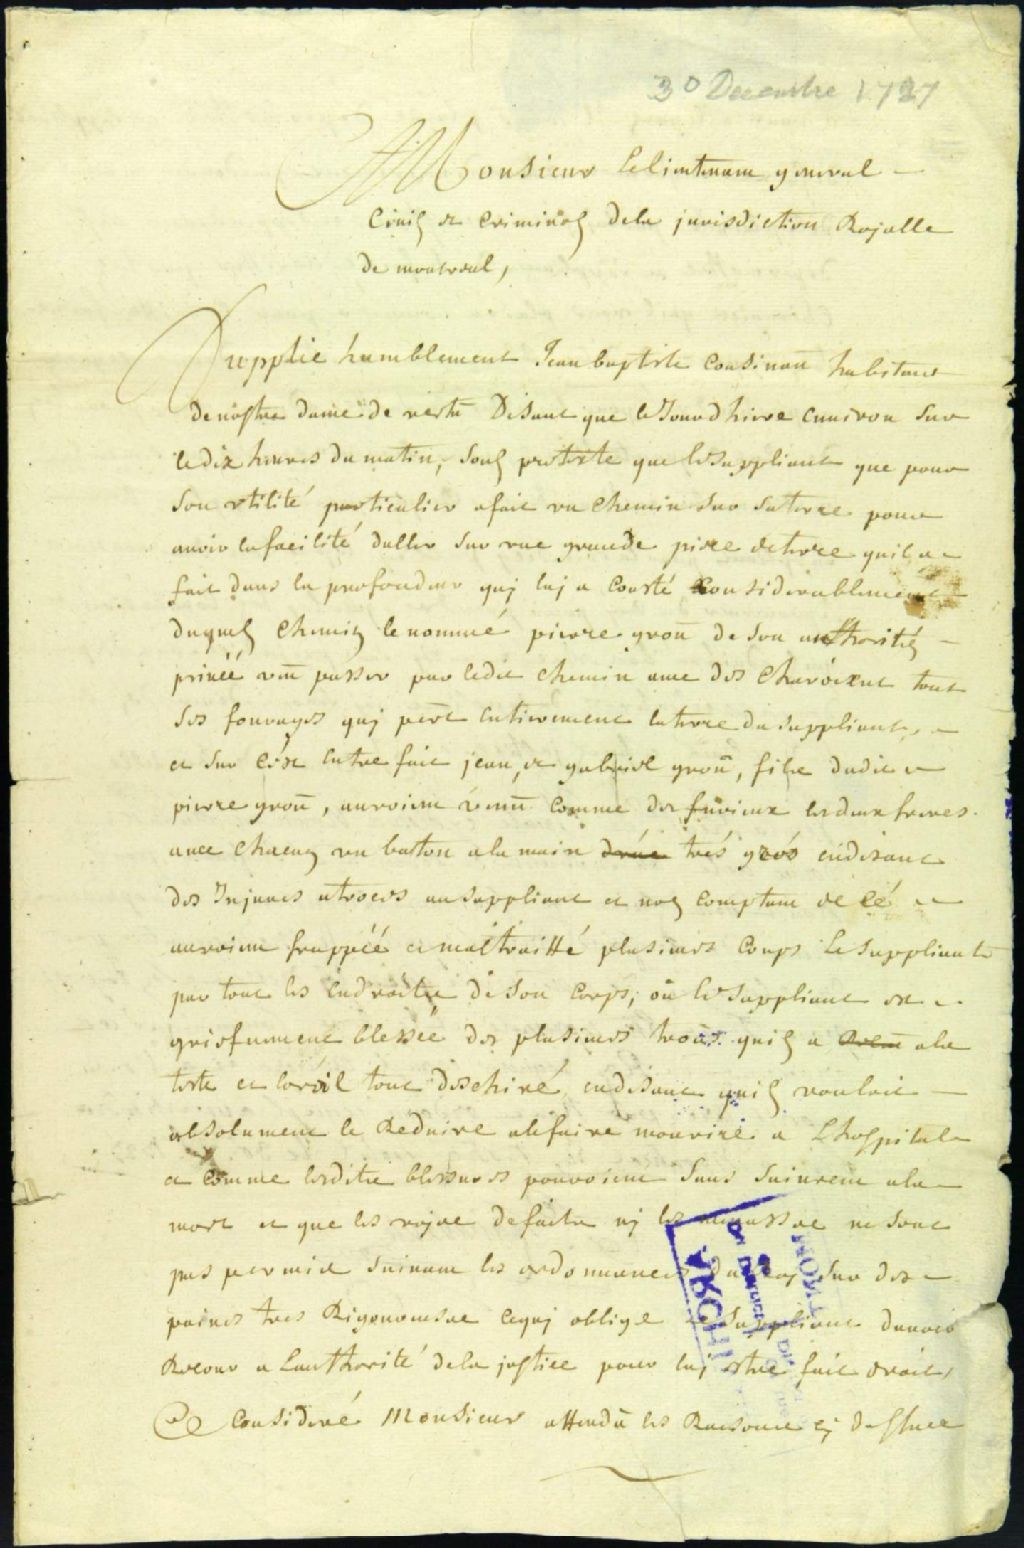 30 Decembre 1727
Monsieur le lieutenant general
Civil et Criminel dela jurisdiction Royalle
De montreal,
Supplie humblement Jean baptiste Cousinau habitant
de nostre dame de vertu Disant que le Jourdhiere environ sur
le dix heures du matin, soub pretexte que le suppliant que pour
son utilité particulier a fait un chemin sur sa terre pour
avoir la facilité daller sur une grande piece de terre quil a
fait dans la profondeur quj luj a Cousté Considerablement
duquel Chemin le nommé pierre grou de son authorité
privéé veu passer par ledit chemin avec des charois et tout
ses fourages quj pert entierement la terre du suppliant,
et sur Cest entre fait jean, et gabriel grou, fils dudit
pierre grou, auroient venu Comme des furieux les deux freres
avec chacun un baston a la main tres gros endisant
des Injures atroces au suppliant et non comptant de Cé
auroient frappéé et maltraitté plusieurs Coups Le suppliant
par tout les endroitz de son Corps, ou le suppliant est
griefvement blessée des plusieurs troas quil a a la
teste et loréil tout deschiré, endisant quil vouloit
absolument le Reduire a le faire mourire a Lhospital
et comme lesditte blessures pouroient sans suivrent a la
mort et que les voye de faite nj les menasse ne sont
pas permis suivant les ordonnances du Roy sur des
paines tres Rigoureuse Cequj oblige le suppliant davoir
Recour a Lauthorité dela justice pour luj estre fait droit,
Ce Consideré Monsieur attendu les Raisons cy dessus
ARCHI